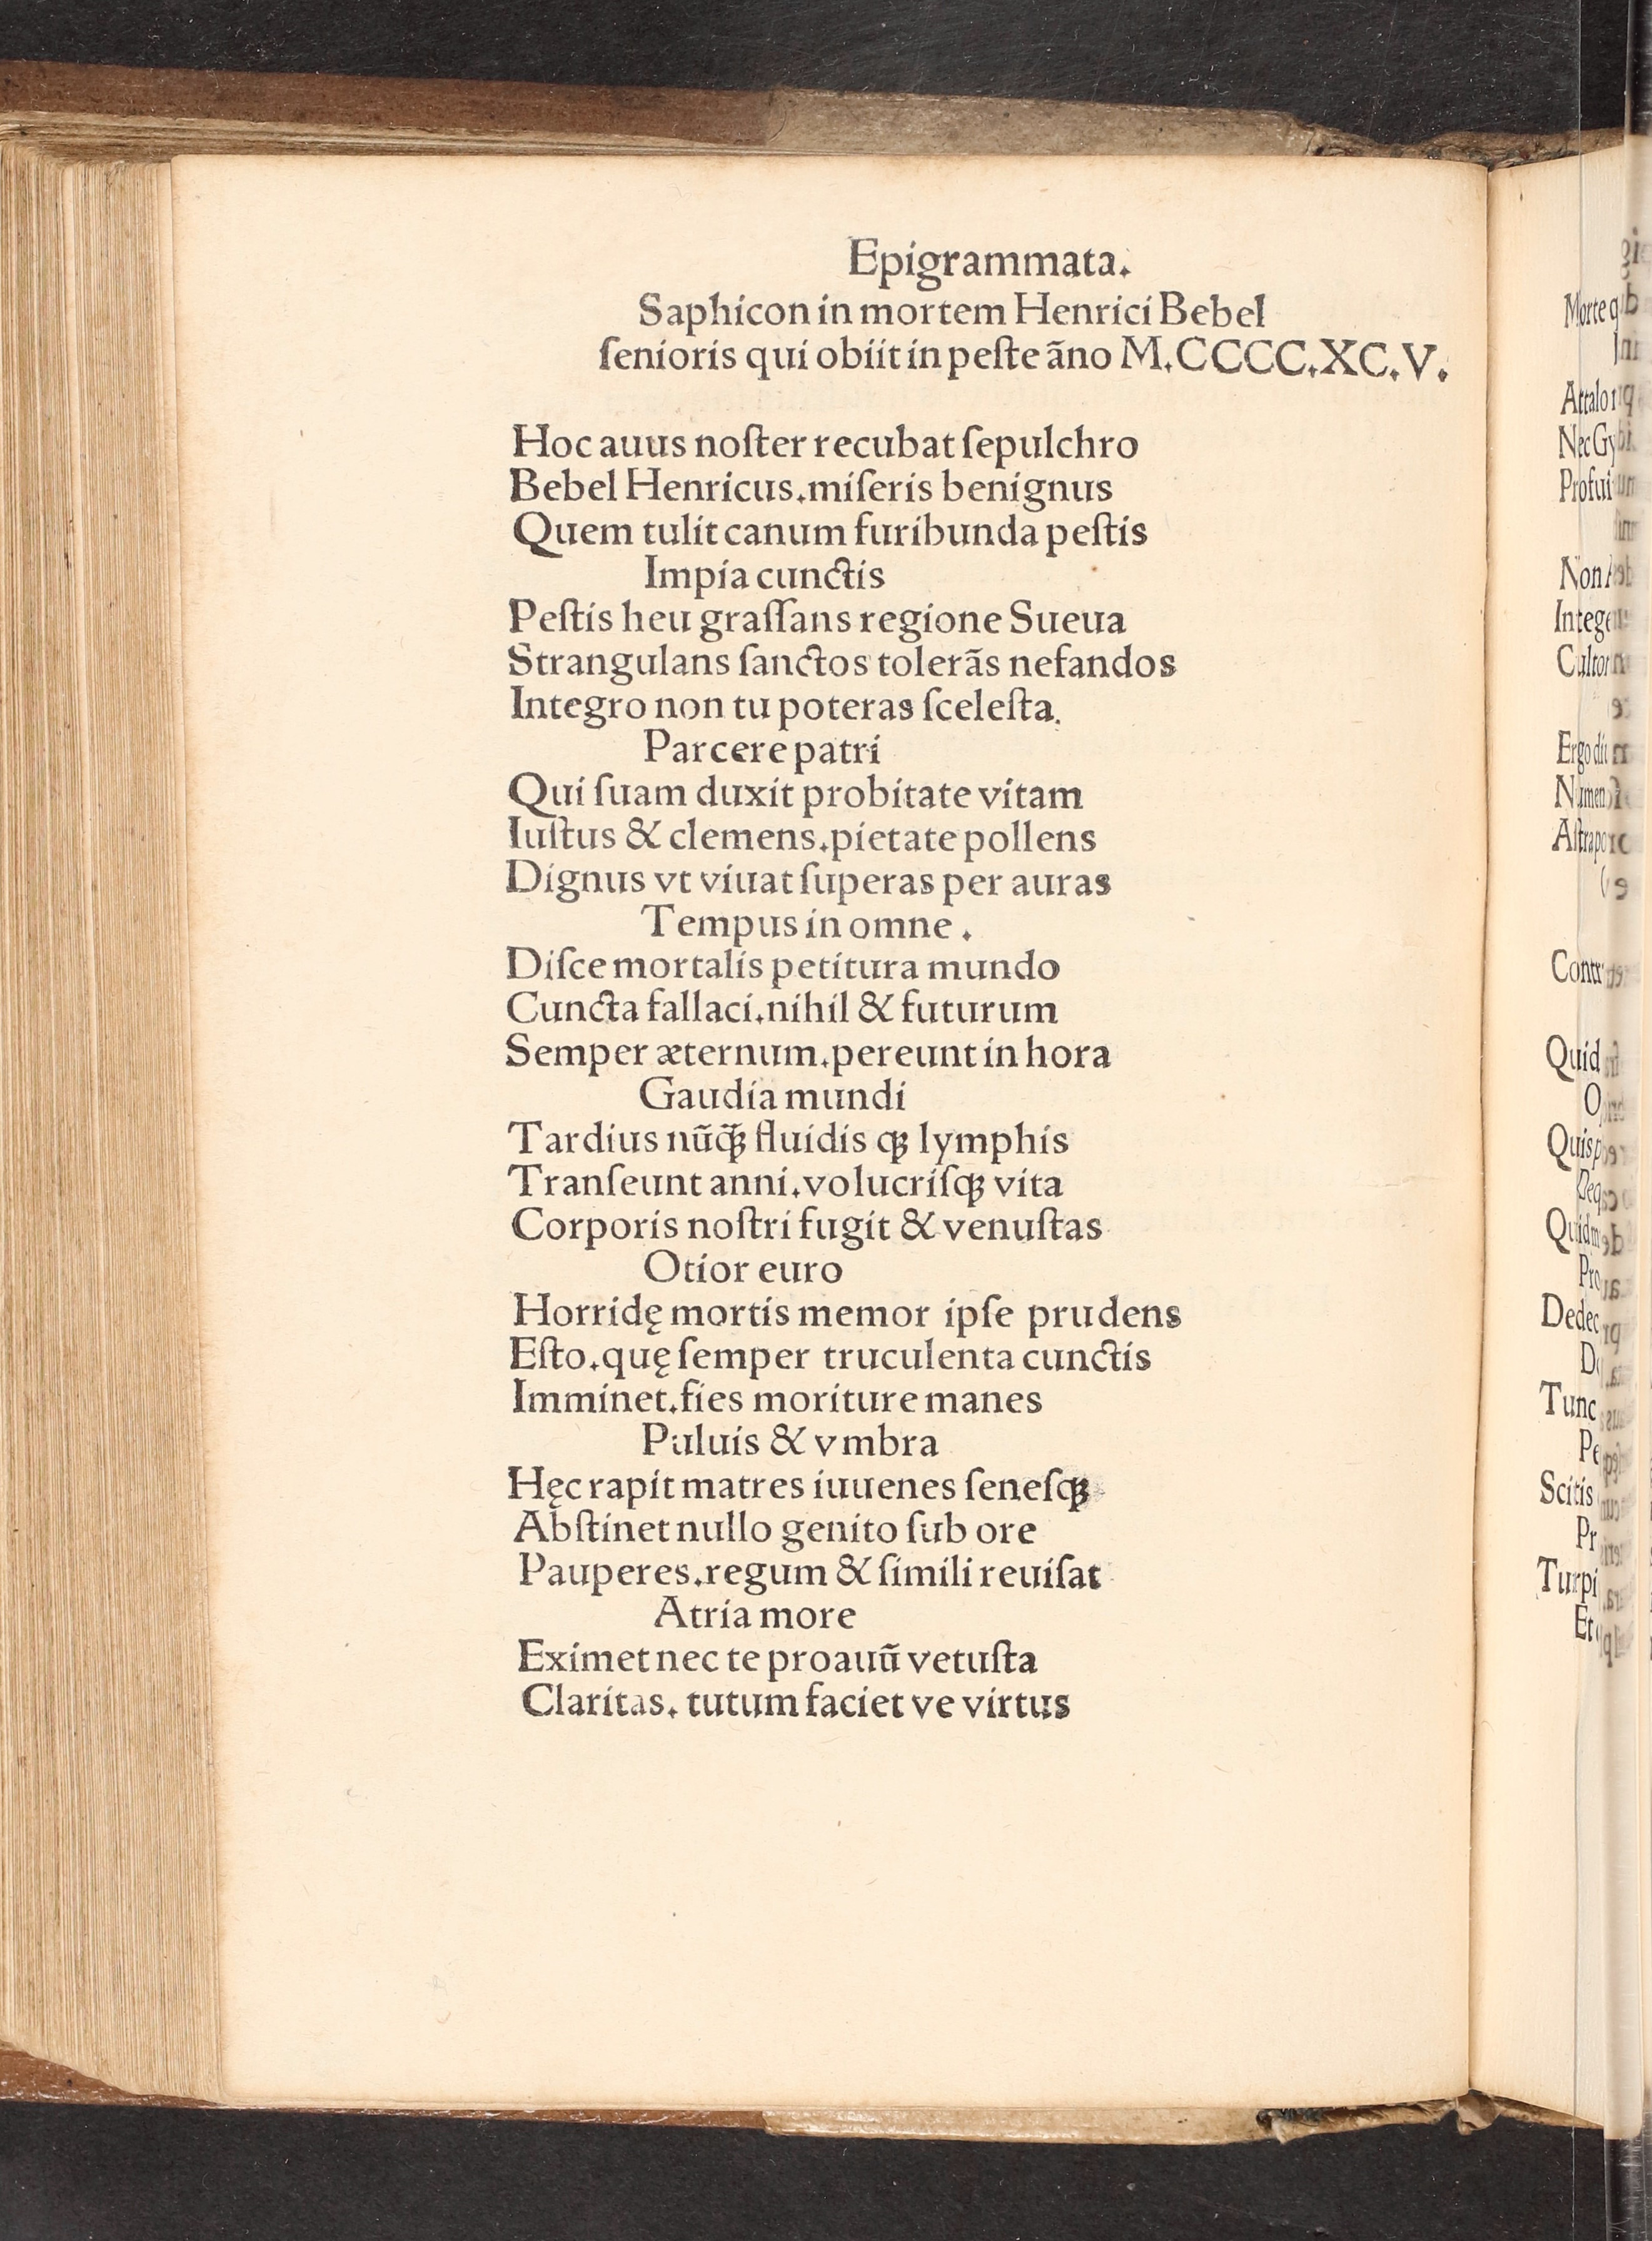 Epigrammata.
Saphicon in mortem Henrici Bebel
ſenioris qui obiit in peſte ãno M.CCCC.XC.V.
Hoc auus noſter recubat ſepulchro
Bebel Henricus.miſeris benignus
Quem tulit canum furibunda peſtis
Impia cunctis
Peſtis heu graſſans regione Sueua
Strangulans ſanctos tolerãs nefandos
Integro non tu poteras ſceleſta.
Parcere patri
Qui ſuam duxit probitate vitam
Iuſtus & clemens.pietate pollens
Dignus vt viuat ſuperas per auras
Tempus in omne.
Diſce mortalis petitura mundo
Cuncta fallaci.nihil & futurum
Semper æternum.pereunt in hora
Gaudia mundi
Tardius nũq̃ꝫ fluidis qꝫ lymphis
Tranſeunt anni.volucriſqꝫ vita
Corporis noſtri fugit & venuſtas
Otior euro
Horridę mortis memor ipſe prudens
Eſto.quę ſemper truculenta cunctis
Imminet.fies moriture manes
Puluis & vmbra
Hęc rapit matres iuuenes ſeneſqꝫ
Abſtinet nullo genito ſub ore
Pauperes.regum & ſimili reuiſat
Atria more
Eximet nec te proauũ vetuſta
Claritas. tutum faciet ve virtus